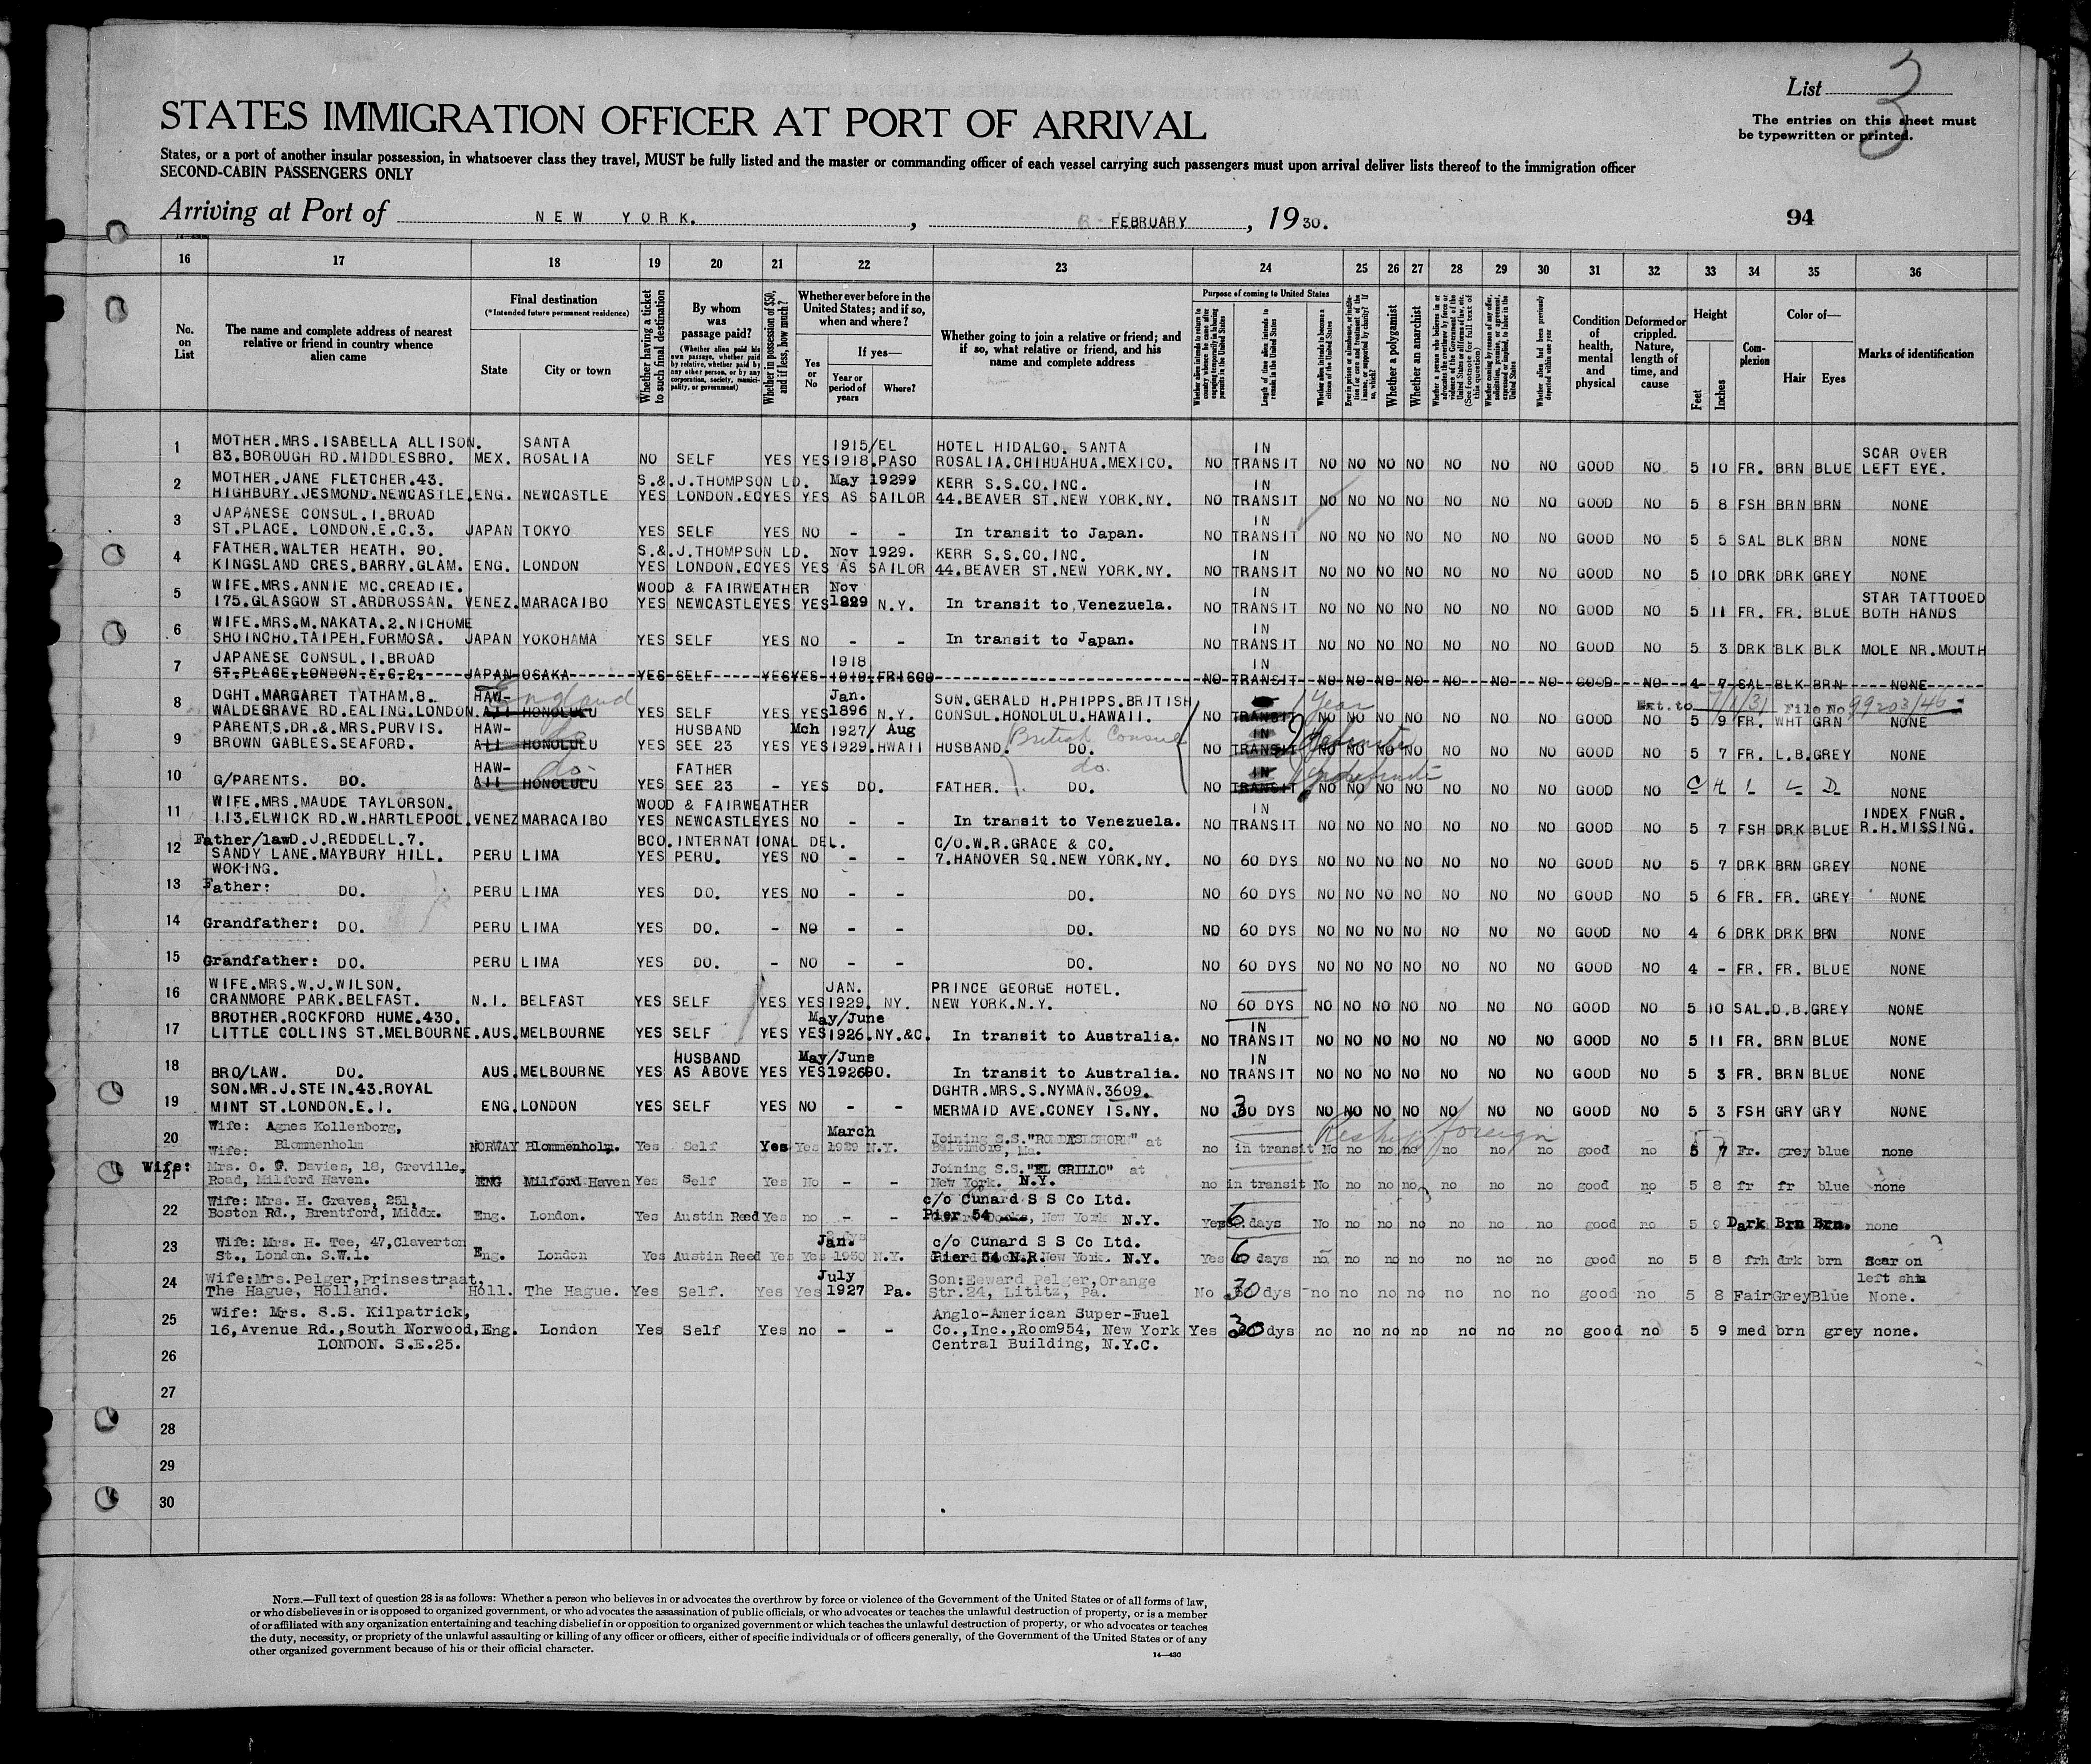 List 3
STATES IMMIGRATION OFFICER AT PORT OF ARRIVAL
The entries on this sheet must
be typewritten or printed.
States, or a port of another insular possession, in whatsoever class they travel, MUST be fully listed and the master or commanding officer of each vessel carrying such passengers must upon arrival deliver lists thereof to the immigration officer
SECOND-CABIN PASSENGERS ONLY
Arriving at Port of NEW YORK. , FEBRUARY , 1930. 94
16 17 18 19 20 21 22 23 24 25 26 27 28 29 30 31 32 33 34 35 36
No. on List
The name and complete address of nearest relative or friend in country whence alien came
Final destination
(*Intended future permanent residence)
State City or town
Whether having a ticket to such final destination
By whom was passage paid?
(Whether alien paid his own passage, whether paid by relative, whether paid by any other person, or by any corporation, society, municipality, or government)
Whether in possession of $50, and if less, how much?
Whether ever before in the United States; and if so, when and where?
Yes or No
If yes—
Year or period of years Where?
Whether going to join a relative or friend; and if so, what relative or friend, and his name and complete address
Purpose of coming to United States
Length of time alien intends to remain in the United States
Whether alien intends to become a citizen of the United States
Whether a polygamist
Whether an anarchist
Condition of health, mental and physical
Deformed or crippled. Nature, length of time, and cause
Height
Feet Inches
Complexion
Color of—
Hair Eyes
Marks of identification
1 MOTHER.MRS.ISABELLA ALLISON. SANTA 1915/EL HOTEL HIDALGO. SANTA IN SCAR OVER
83.BOROUGH RD.MIDDLESBRO. MEX. ROSALIA NO SELF YES YES 1918.PASO ROSALIA.CHIHUAHUA.MEXICO. NO TRANSIT NO NO NO NO NO NO NO GOOD NO 5 10 FR. BRN BLUE LEFT EYE.
2 MOTHER.JANE FLETCHER.43. S.&.J.THOMPSON LD. May 19299 KERR S.S.CO.INC. IN
HIGHBURY.JESMOND.NEWCASTLE.ENG. NEWCASTLE YES LONDON.EC YES YES AS SAILOR 44.BEAVER ST.NEW YORK.NY. NO TRANSIT NO NO NO NO NO NO NO GOOD NO 5 8 FSH BRN BRN NONE
3 JAPANESE CONSUL.1.BROAD IN
ST.PLACE. LONDON.E.C.3. JAPAN TOKYO YES SELF YES NO - - In transit to Japan. NO TRANSIT NO NO NO NO NO NO NO GOOD NO 5 5 SAL BLK BRN NONE
4 FATHER.WALTER HEATH. 90. S.&.J.THOMPSON LD. Nov 1929. KERR S.S.CO.INC. IN
KINGSLAND CRES.BARRY.GLAM. ENG. LONDON YES LONDON.EC YES YES AS SAILOR 44.BEAVER ST.NEW YORK.NY. NO TRANSIT NO NO NO NO NO NO NO GOOD NO 5 10 DRK DRK GREY NONE
5 WIFE.MRS.ANNIE MC.CREADIE. WOOD & FAIRWEATHER Nov IN STAR TATTOOED
175.GLASGOW ST.ARDROSSAN. VENEZ. MARACAIBO YES NEWCASTLE YES YES 1929 N.Y. In transit to Venezuela. NO TRANSIT NO NO NO NO NO NO NO GOOD NO 5 11 FR. FR. BLUE BOTH HANDS
6 WIFE.MRS.M.NAKATA.2.NICHOME IN
SHOINCHO.TAIPEH.FORMOSA. JAPAN YOKOHAMA YES SELF YES NO - - In transit to Japan. NO TRANSIT NO NO NO NO NO NO NO GOOD NO 5 3 DRK BLK BLK MOLE NR.MOUTH
7 JAPANESE CONSUL.1.BROAD 1918 IN
ST.PLACE.LONDON.E.C.2. JAPAN OSAKA YES SELF YES YES 1919.FRISCO NO TRANSIT NO NO NO NO NO NO NO GOOD NO 4 7 SAL BLK BRN NONE
8 DGHT.MARGARET TATHAM.8. HAW- England Jan. SON.GERALD H.PHIPPS.BRITISH 1 Year Ext.to 7/1/31 File No 99203/46
WALDEGRAVE RD.EALING.LONDON. AII HONOLULU YES SELF YES YES 1896 N.Y. CONSUL.HONOLULU.HAWAII. NO TRANSIT NO NO NO NO NO NO NO GOOD NO 5 9 FR. WHT GRN NONE
9 PARENTS.DR.&.MRS.PURVIS. HAW- do HUSBAND Mch 1927/ Aug British Consul IN Indefinite
BROWN GABLES.SEAFORD. AII HONOLULU YES SEE 23 YES YES 1929.HWAII HUSBAND. DO. NO TRANSIT NO NO NO NO NO NO NO GOOD NO 5 7 FR. L.B. GREY NONE
10 HAW- do. FATHER do. IN Indefinite
G/PARENTS. DO. AII HONOLULU YES SEE 23 - YES DO. FATHER. DO. NO TRANSIT NO NO NO NO NO NO NO GOOD NO C H I L D NONE
11 WIFE.MRS.MAUDE TAYLORSON. WOOD & FAIRWEATHER IN INDEX FNGR.
113.ELWICK RD.W.HARTLEPOOL. VENEZ MARACAIBO YES NEWCASTLE YES NO - - In transit to Venezuela. NO TRANSIT NO NO NO NO NO NO NO GOOD NO 5 7 FSH DRK BLUE R.H.MISSING.
12 Father/law D.J.REDDELL.7. BCO.INTERNATIONAL DEL. C/O.W.R.GRACE & CO.
SANDY LANE.MAYBURY HILL. PERU LIMA YES PERU. YES NO - - 7.HANOVER SQ.NEW YORK.NY. NO 60 DYS NO NO NO NO NO NO NO GOOD NO 5 7 DRK BRN GREY NONE
WOKING.
13 Father: DO. PERU LIMA YES DO. YES NO - - DO. NO 60 DYS NO NO NO NO NO NO NO GOOD NO 5 6 FR. FR. GREY NONE
14 Grandfather: DO. PERU LIMA YES DO. - NO - - DO. NO 60 DYS NO NO NO NO NO NO NO GOOD NO 4 6 DRK DRK BRN NONE
15 Grandfather: DO. PERU LIMA YES DO. - NO - - DO. NO 60 DYS NO NO NO NO NO NO NO GOOD NO 4 - FR. FR. BLUE NONE
16 WIFE.MRS.W.J.WILSON. JAN. PRINCE GEORGE HOTEL.
CRANMORE PARK.BELFAST. N.I. BELFAST YES SELF YES YES 1929. NY. NEW YORK.N.Y. NO 60 DYS NO NO NO NO NO NO NO GOOD NO 5 10 SAL. D.B. GREY NONE
17 BROTHER.ROCKFORD HUME.430. May/June IN
LITTLE COLLINS ST.MELBOURNE. AUS. MELBOURNE YES SELF YES YES 1926. NY.&C. In transit to Australia. NO TRANSIT NO NO NO NO NO NO NO GOOD NO 5 11 FR. BRN BLUE NONE
18 HUSBAND May/June IN
BRO/LAW. DO. AUS. MELBOURNE YES AS ABOVE YES YES 1926 DO. In transit to Australia. NO TRANSIT NO NO NO NO NO NO NO GOOD NO 5 3 FR. BRN BLUE NONE
19 SON.MR.J.STEIN.43.ROYAL DGHTR.MRS.S.NYMAN.3609.
MINT ST.LONDON.E.1. ENG. LONDON YES SELF YES NO - - MERMAID AVE.CONEY IS.NY. NO 30 DYS NO NO NO NO NO NO NO GOOD NO 5 3 FSH GRY GRY NONE
20 Wife: Agnes Kollenborg, March Joining S.S. at Reship foreign
Blommenholm NORWAY Blommenholm. Yes Self Yes Yes 1920 N.Y. Baltimore, Ma. no in transit No no no no no no no good no 5 7 Fr. grey blue none
Wife:
21 Wife: Mrs. O. F. Davies, 18, Greville, Joining S.S."EL GRILLO" at
Road, Milford Haven. ENG Milford Haven Yes Self Yes No - - New York. N.Y. no in transit No no no no no no no good no 5 8 fr fr blue none
22 Wife: Mrs. H. Graves, 251, c/o Cunard S S Co Ltd.
Boston Rd., Brentford, Middx. Eng. London. Yes Austin Reed Yes no - - Pier 54 New York N.Y. Yes 6 days No no no no no no no good no 5 9 Dark Brn Brn. none
23 Wife: Mrs. H. Tee, 47,Claverton Jan. c/o Cunard S S Co Ltd.
St., London. S.W.1. Eng. London Yes Austin Reed Yes Yes 1930 N.Y. Pier 54 N.R. New York. N.Y. Yes 6 days no no no no no no no good no 5 8 frh drk brn scar on
left shin
24 Wife:Mrs.Pelger,Prinsestraat, July Son:Eeward Pelger,Orange
The Hague, Holland. Holl. The Hague. Yes Self. Yes Yes 1927 Pa. Str.24, Lititz, Pa. No 30 dys no no no no no no no good no 5 8 Fair Grey Blue None.
25 Wife: Mrs. S.S. Kilpatrick, Anglo-American Super-Fuel
16,Avenue Rd.,South Norwood, Eng. London Yes Self Yes no - - Co.,Inc.,Room954, New York Yes 30 dys no no no no no no no good no 5 9 med brn grey none.
LONDON. S.E.25. Central Building, N.Y.C.
26
27
28
29
30
NOTE.—Full text of question 28 is as follows: Whether a person who believes in or advocates the overthrow by force or violence of the Government of the United States or of all forms of law,
or who disbelieves in or is opposed to organized government, or who advocates the assassination of public officials, or who advocates or teaches the unlawful destruction of property, or is a member
of or affiliated with any organization entertaining and teaching disbelief in or opposition to organized government or which teaches the unlawful destruction of property, or who advocates or teaches
the duty, necessity, or propriety of the unlawful assaulting or killing of any officer or officers, either of specific individuals or of officers generally, of the Government of the United States or of any
other organized government because of his or their official character.
14—430